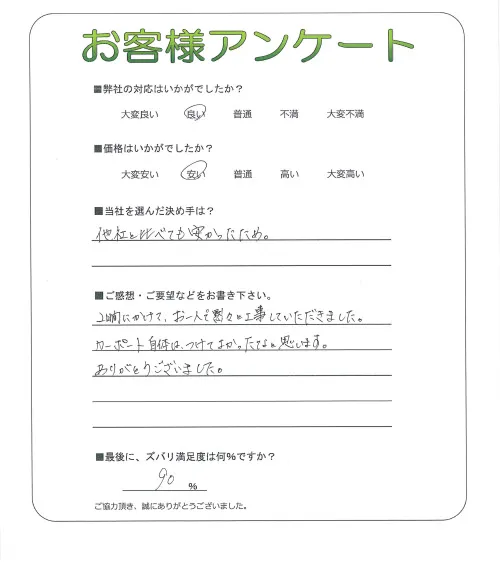 お客様アンケート
■弊社の対応はいかがでしたか?
大変良い 良い 普通 不満 大変不満
■価格はいかがでしたか?
大変安い 安い 普通 高い 大変高い
■当社を選んだ決め手は?
他社と比べても安かったため。
■ご感想・ご要望などをお書き下さい。
2日間にかけて、お一人で黙々と工事していただきました。
カーポート自体は、つけてよかったなと思います。
ありがとうございました。
■最後に、ズバリ満足度は何%ですか?
90 %
ご協力頂き、誠にありがとうございました。